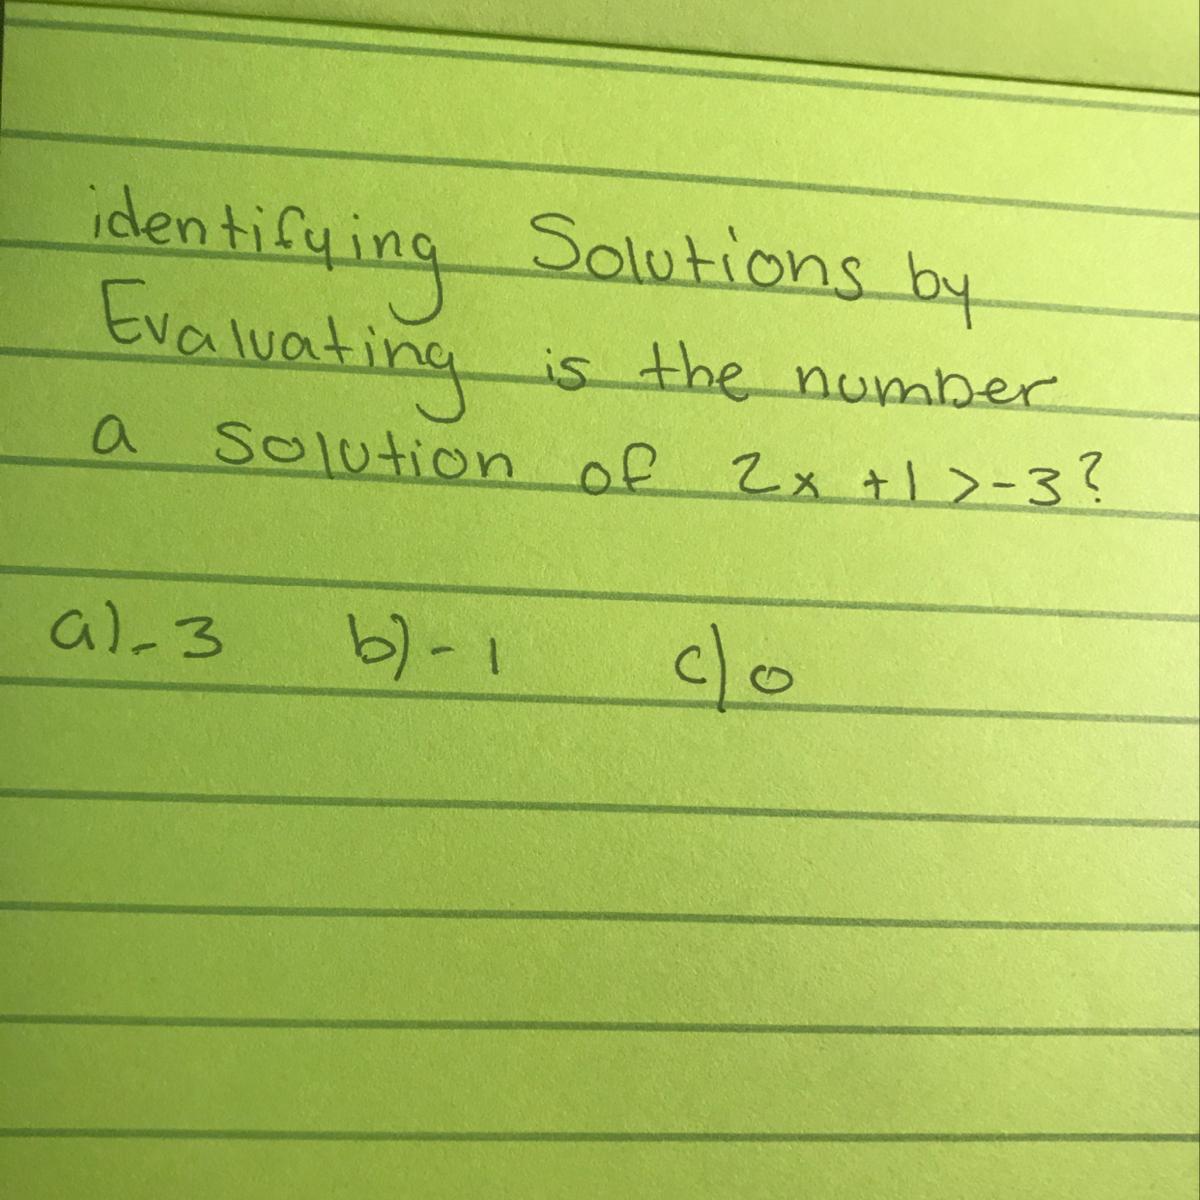 identifying Solutions by
Evaluating is the number
a solution of 2x +1 >-3?
a)-3 b)-1 c)0